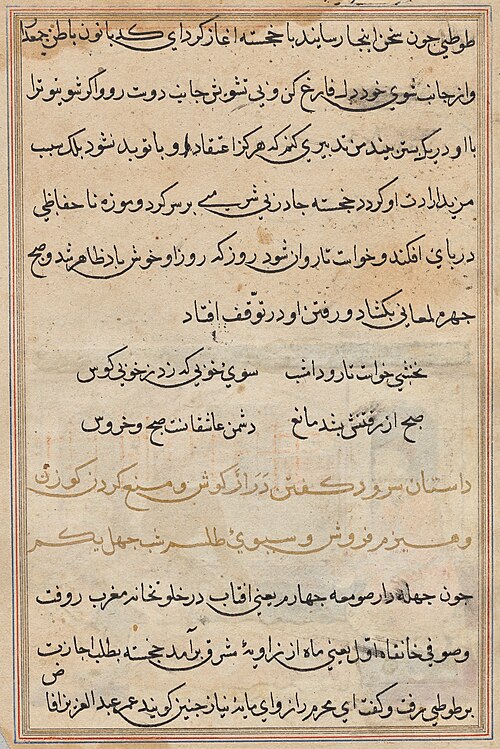 طوطی چون سخن اینجا رسانید با خجسته اغاز کرد ای کدبانو ن باطن جمعدا
و از جانب شوی خود دل فارغ کن و بی تشویش جانب دوست رو و اگر شوی تو ترا
با او در یک بستر بیند من تدبیری کنم که هرگز اعتقاد او با تو بد نشود بلک سبب
مزید ارادت او کردد خجسته جادر زنی شبی برسر کرد و موزه نا حفاظی
در پای افکند و خواست تا روان شود روز که روز او خوش باد ظاهر شد و صبح
چهره لمعانی بکشاد و رفتن او در توقف افتاد
نخشبی خواست تا رود امشب سوی خوبی که زد ز خوبی کوس
صبح از رفتنش بشد مانع دشمن عاشقانست صبح و خروس
داستان سرود کفتن دراز کوش و منع کردن کوزن
و هیزم فروش و سبوی طلسم شب چهل یکم
چون چهله دار صومعه چهارم یعنی افتاب در خلوتخانه مغرب رو رفت
و صوفی خانقاه اول یعنی ماه از زاویه شرق برآمد خجسته بطلب اجازت
بر طوطی رفت و کفت ای محرم راز و ای مایه نیاز چنین کویند عمر عبد العزیز را قا
ض